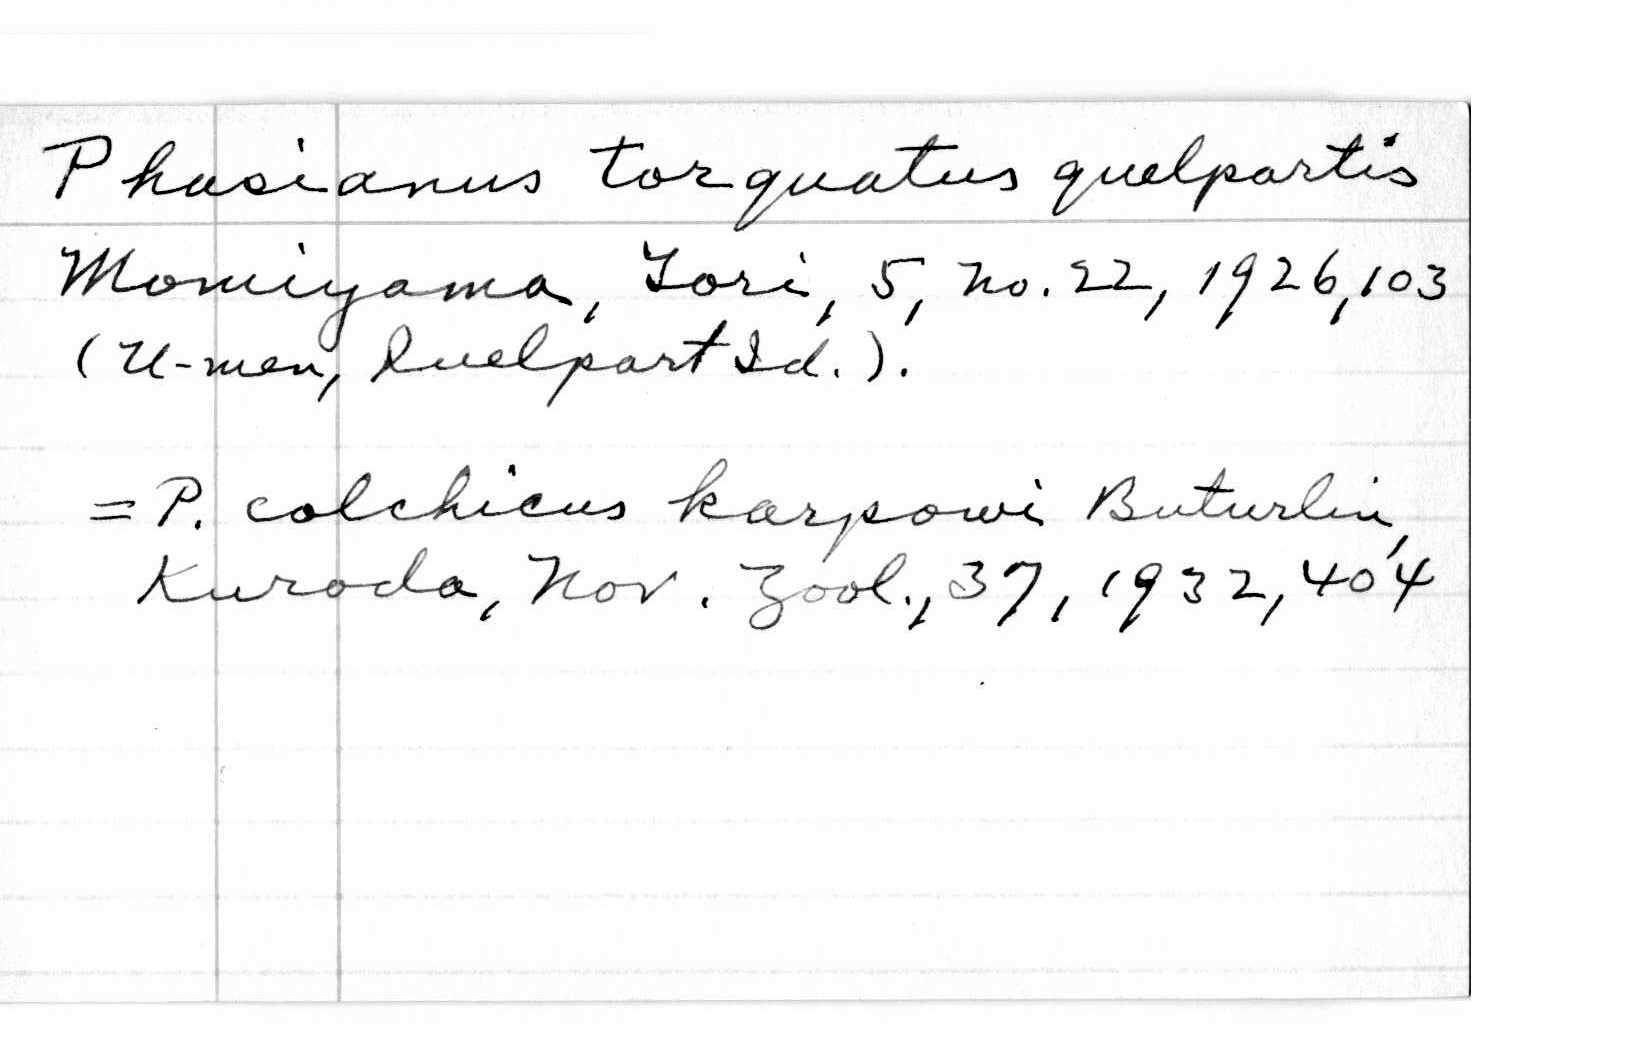 Phasianus torquatus quelpartis
Momiyama, Tori, 5, no. 22, 1926, 103
(U-men, Quelpart Id.).
=P. colchicus karpowi Buturlin,
Kuroda, Nov. Zool., 37, 1932, 404